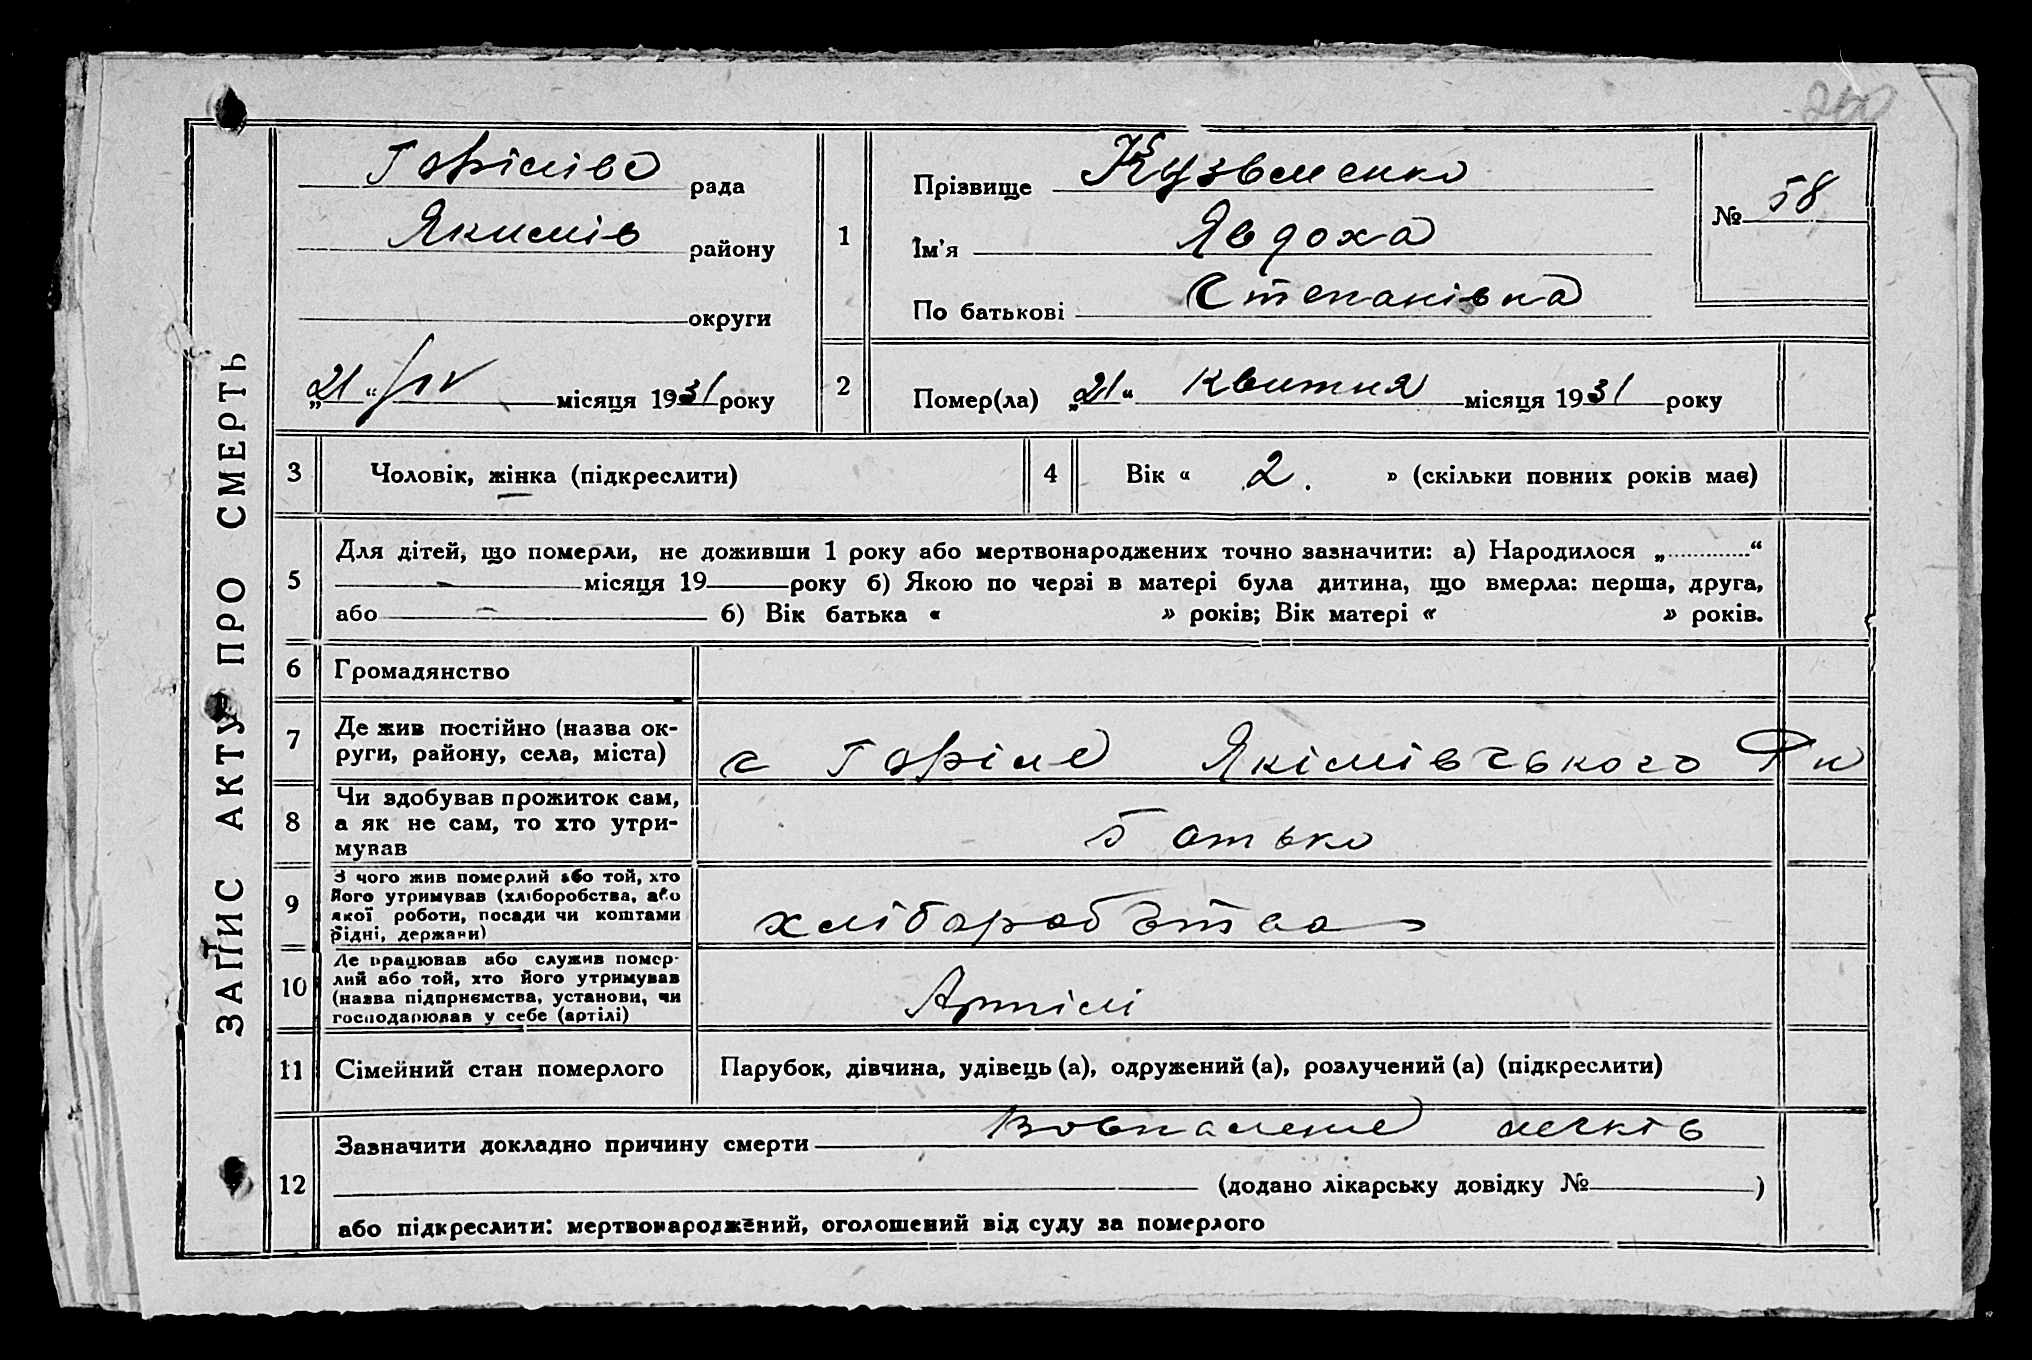 200
ЗАПИС АКТУ ПРО СМЕРТЬ
Горіліва рада
Якимів району
округи
„21“ /IV місяця 1931 року
1
Прізвище Кузьменко
Ім'я Явдоха
По батькові Степанівна
№ 58
2
Помер(ла) „21“ квитня місяця 1931 року
3 Чоловік, жінка (підкреслити)
4 Вік « 2. » (скільки повних років має)
5
Для дітей, що померли, не доживши 1 року або мертвонароджених точно зазначити: а) Народилося „............“
місяця 19 року б) Якою по черзі в матері була дитина, що вмерла: перша, друга,
або б) Вік батька « » років; Вік матері « » років.
6 Громадянство
7 Де жив постійно (назва ок-
руги, району, села, міста)
с Якімівського Рн
8 Чи здобував прожиток сам,
а як не сам, то хто утри-
мував
Батько
9 З чого жив померлий або той, хто
його утримував (хліборобства, або
якої роботи, посади чи коштами
рідні, держави)
хліборобства
10 Де працював або служив помер-
лий або той, хто його утримував
(назва підприємства, установи, чи
господарював у себе (артілі)
Артілі
11 Сімейний стан померлого
Парубок, дівчина, удівець (а), одружений (а), розлучений (а) (підкреслити)
12
Зазначити докладно причину смерти Воспаление легків
(додано лікарську довідку № )
або підкреслити: мертвонароджений, оголошений від суду за померлого